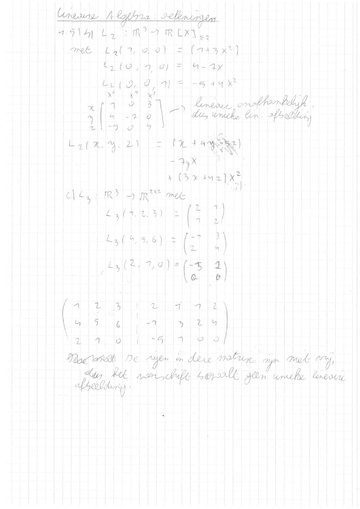 Lineaire Algebra: oefeningen
1.5 (b) L₂ : ℝ³ → ℝ[X]≤2
met L₂(1, 0, 0) = (1 + 3x²)
L₂(0, 1, 0) = 4 - 7x
L₂(0, 0, 1) = -5 + 4x²
x⁰ x¹ x²
x 1 0 3
y 4 -7 0
z -5 0 4
→ lineair onafhankelijk,
dus unieke lin. afbeelding
L₂(x, y, z) = (x + 4y - 5z)
- 7yx
+ (3x + 4z)x²
c) L₃ : ℝ³ → ℝ²ˣ² met
L₃(1, 2, 3) = (2 1
1 2)
L₃(4, 5, 6) = (-1 3
2 4)
L₃(2, 1, 0) = (-5 1
0 0)
1 2 3 2 1 1 2
4 5 6 -1 3 2 4
2 1 0 -5 1 0 0
De rijen in deze matrix zijn niet vrij,
dus het voorschrift bepaalt geen unieke lineaire
afbeelding